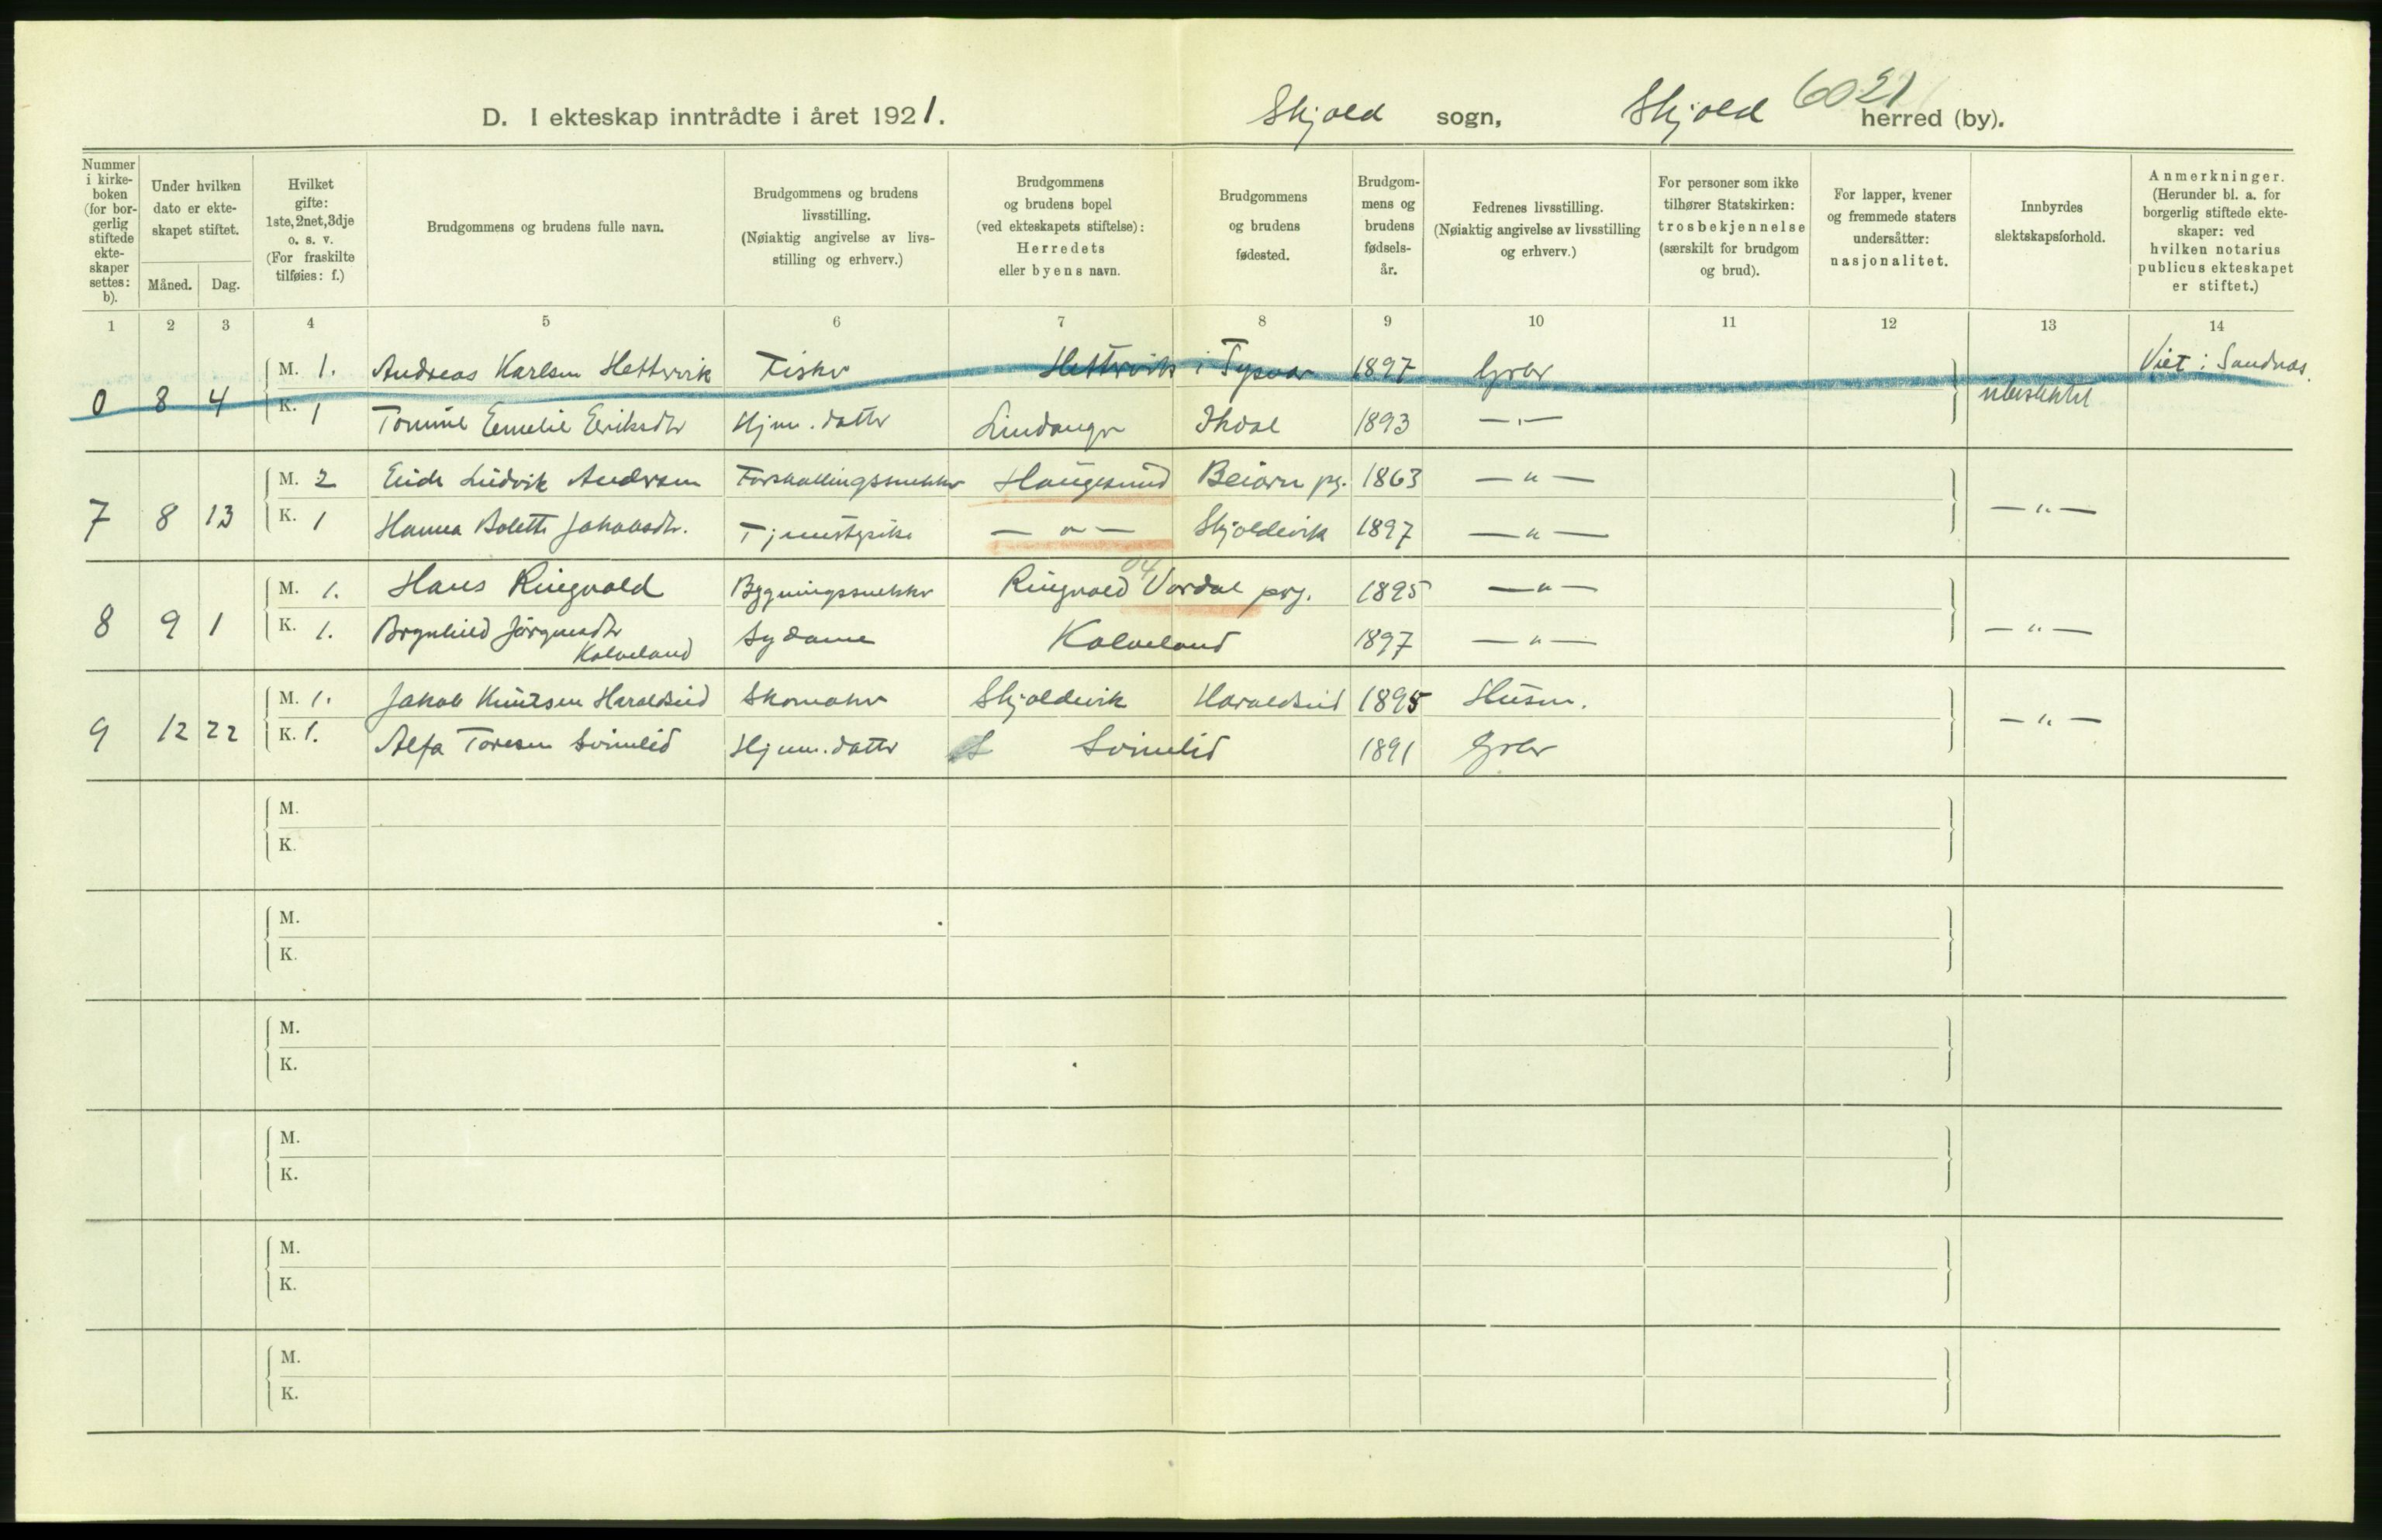 6021
D. I ekteskap inntrådte i året 1921. Skjold sogn, Skjold herred (by).
Nummer i kirkeboken (for borgerlig stiftede ekteskaper settes: b).
Under hvilken dato er ekteskapet stiftet.
Måned. Dag.
Hvilket gifte: 1ste, 2net, 3dje o. s. v. (For fraskilte tilføies: f.)
Brudgommens og brudens fulle navn.
Brudgommens og brudens livsstilling. (Nøiaktig angivelse av livsstilling og erhverv.)
Brudgommens og brudens bopel (ved ekteskapets stiftelse): Herredets eller byens navn.
Brudgommens og brudens fødested.
Brudgommens og brudens fødselsår.
Fedrenes livsstilling. (Nøiaktig angivelse av livsstilling og erhverv.)
For personer som ikke tilhører Statskirken: trosbekjennelse (særskilt for brudgom og brud).
For lapper, kvener og fremmede staters undersåtter: nasjonalitet.
Innbyrdes slektskapsforhold.
Anmerkninger. (Herunder bl. a. for borgerlig stiftede ekteskaper: ved hvilken notarius publicus ekteskapet er stiftet.)
1 2 3 4 5 6 7 8 9 10 11 12 13 14
0 8 4 M. 1. Andreas Karlsen Hettervik Fisker Hettervik i Tysvær 1897 Grbr ubeslektet Viet i Sandnes.
K. 1 Tomine Emelie Eriksdtr Hjem. datter Lindanger 1893 — " —
7 8 13 M. 2 Ludvik Andersen Forskallingssnekker Haugesund Beiarn pg. 1863 — " — — " —
K. 1 Hanna Bolette Johansdtr. Tjenestepike — " — Skjoldevik 1897 — " —
04
8 9 1 M. 1. Hans Ringvold Bygningssnekker Ringvold Verdal prg. 1895 — " — — " —
K. 1. Brynhild Jörgensdtr Kalveland Sydame Kalveland 1897 — " —
9 12 22 M. 1. Jakob Knutsen Haraldseid Skomaker Skjoldevik Haraldseid 1895 Husm. — " —
K. 1. Alfa Toresen Svinelid Hjem. datter S Svinelid 1891 Grbr
M.
K.
M.
K.
M.
K.
M.
K.
M.
K.
M.
K.